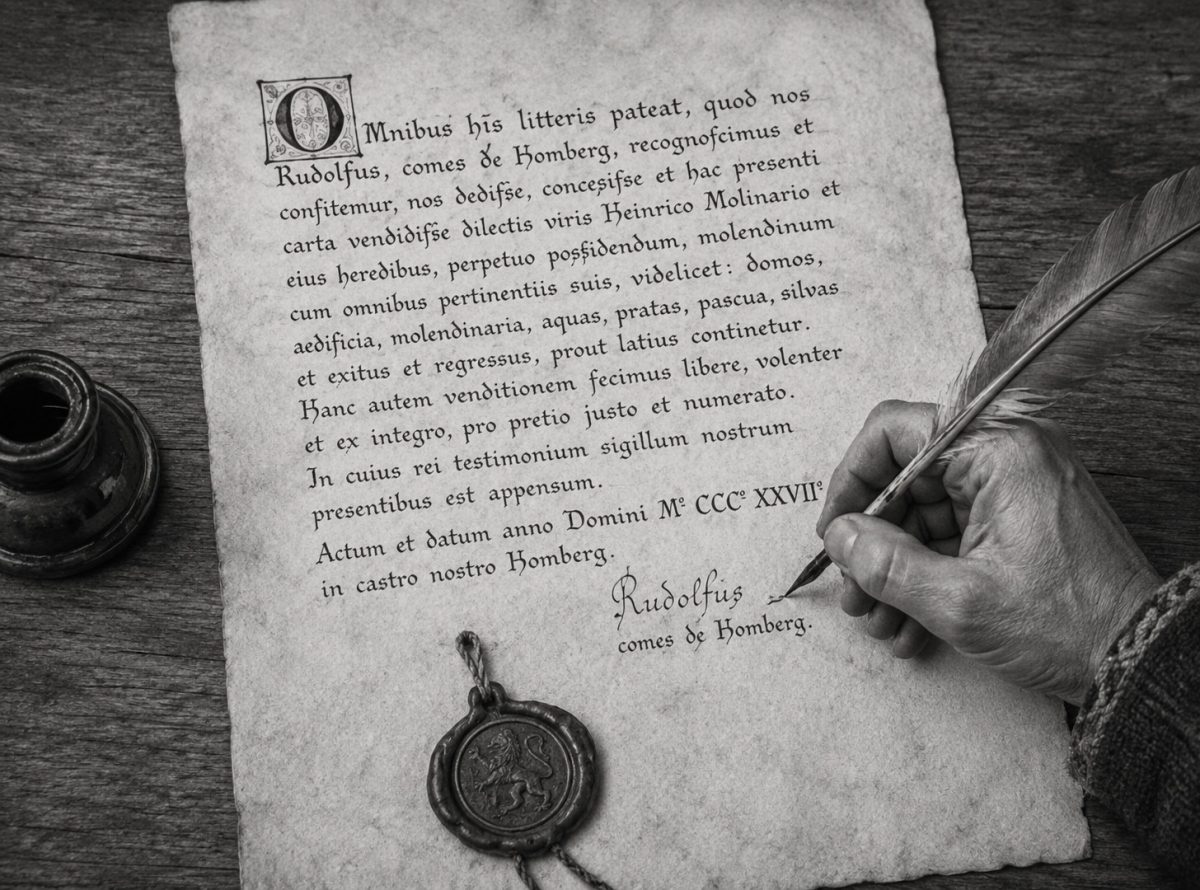 OMnibus hīs litteris pateat, quod nos
Rudolfus, comes de Homberg, recognoſcimus et
confitemur, nos dediſse, conceſiſse et hac presenti
carta vendidiſse dilectis viris Heinrico Molinario et
eius heredibus, perpetuo poſſidendum, molendinum
cum omnibus pertinentiis suis, videlicet: domos,
aedificia, molendinaria, aquas, pratas, pascua, silvas
et exitus et regressus, prout latius continetur.
Hanc autem venditionem fecimus libere, volenter
et ex integro, pro pretio justo et numerato.
In cuius rei testimonium sigillum nostrum
presentibus est appensum.
Actum et datum anno Domini Mº CCCº XXVIIº
in castro nostro Homberg.
Rudolfus
comes de Homberg.